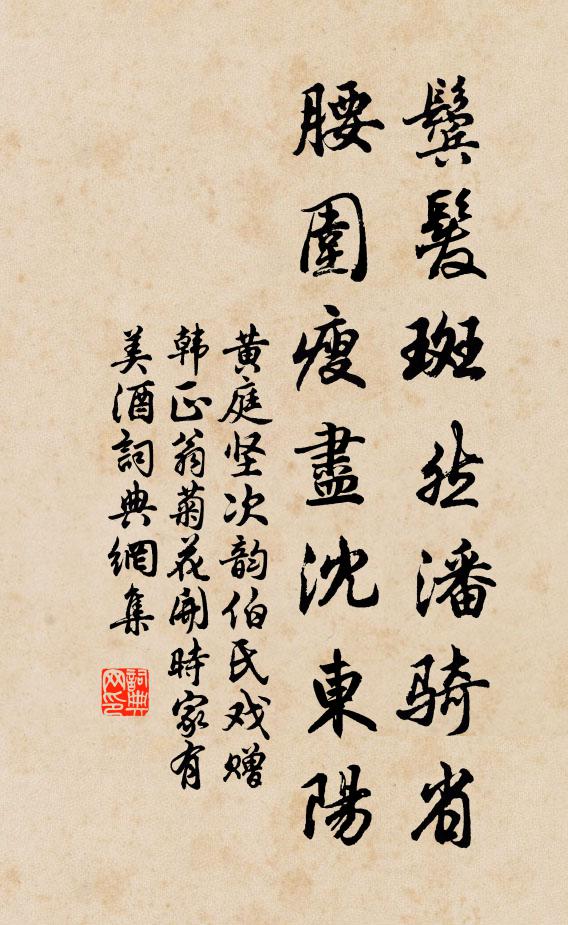 鬓髮斑然潘骑省
腰圍瘦盡沈東陽
黄庭坚次韵伯氏戏赠
韩正翁菊花開時家有
美酒詞典網集
詞典網印